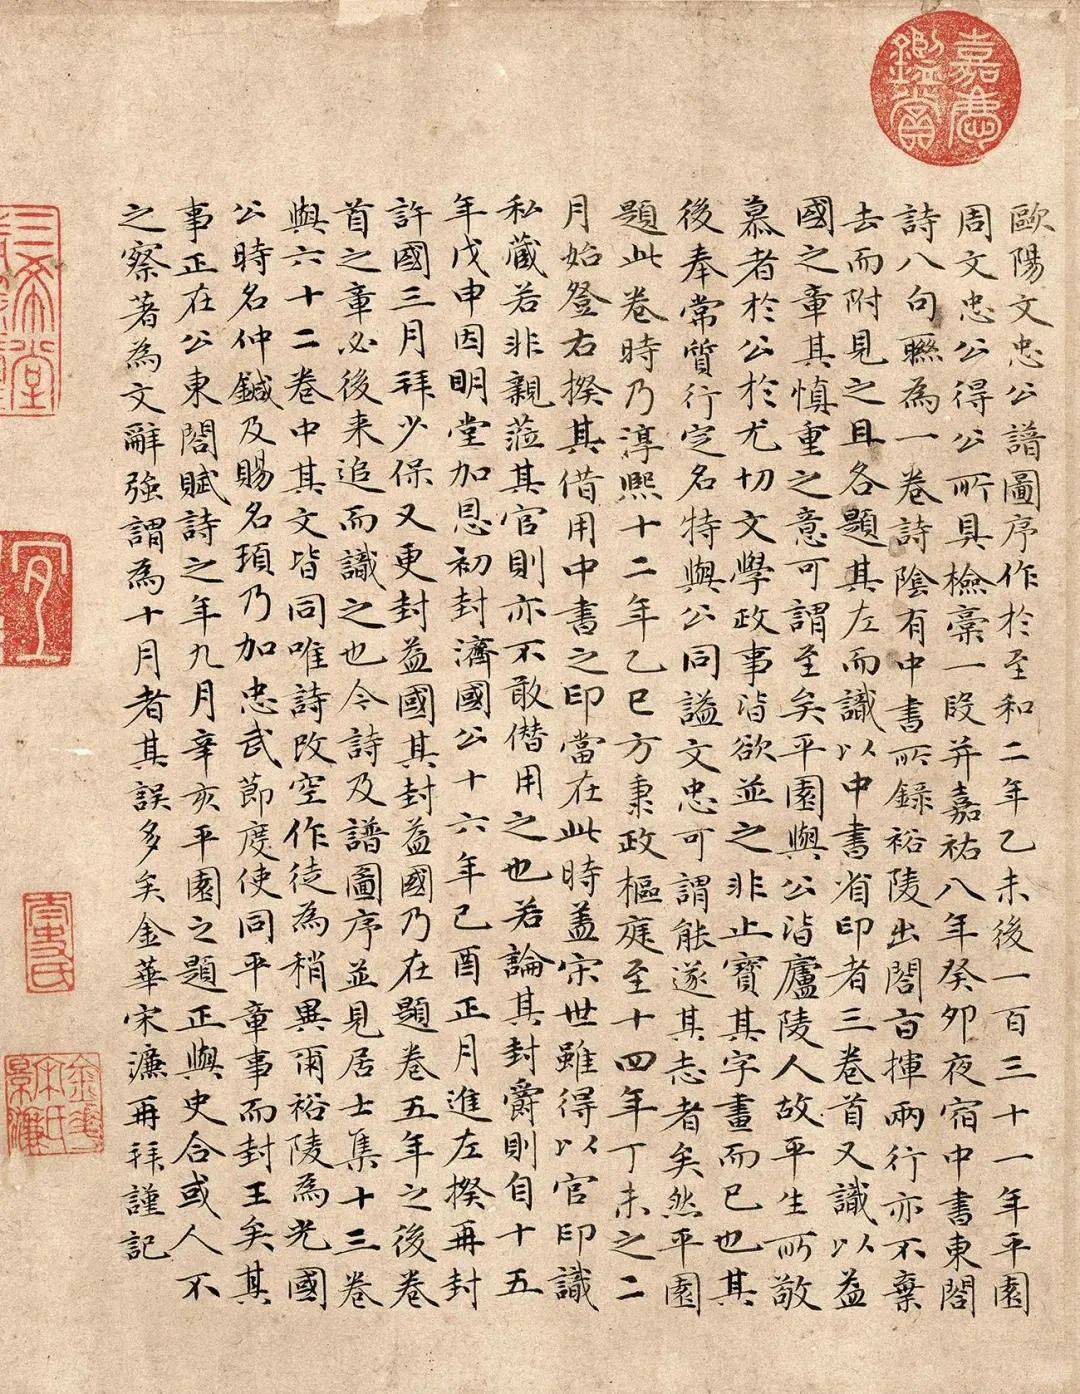 嘉慶鑑賞
歐陽文忠公譜圖序作於至和二年乙未後一百三十一年平園
周文忠公得公所具檢藁一段并嘉祐八年癸卯夜宿中書東閤
詩八句聯為一卷詩陰有中書所錄裕陵出閤百揮兩行亦不棄
去而附見之且各題其左而識以中書省印者三卷首又識以益
國之章其慎重之意可謂至矣平園與公皆廬陵人故平生所敬
慕者於公於尤切文學政事皆欲並之非止寶其字畫而已也其
後奉常質行定名特與公同謚文忠可謂能遂其志者矣然平園
題此卷時乃淳熙十二年乙巳方秉政樞庭至十四年丁未之二
月始登右揆其借用中書之印當在此時蓋宋世雖得以官印識
私藏若非親蒞其官則亦不敢僭用之也若論其封爵則自十五
年戊申因明堂加恩初封濟國公十六年己酉正月進左揆再封
許國三月拜少保又更封益國其封益國乃在題卷五年之後卷
首之章必後来追而識之也今詩及譜圖序並見居士集十三卷
與六十二卷中其文皆同唯詩改空作徒為稍異爾裕陵為光國
公時名仲鍼及賜名頊乃加忠武節度使同平章事而封王矣其
事正在公東閤賦詩之年九月辛亥平園之題正與史合或人不
之察著為文辭強謂為十月者其誤多矣金華宋濂再拜謹記
三希堂
金華宋氏景濂